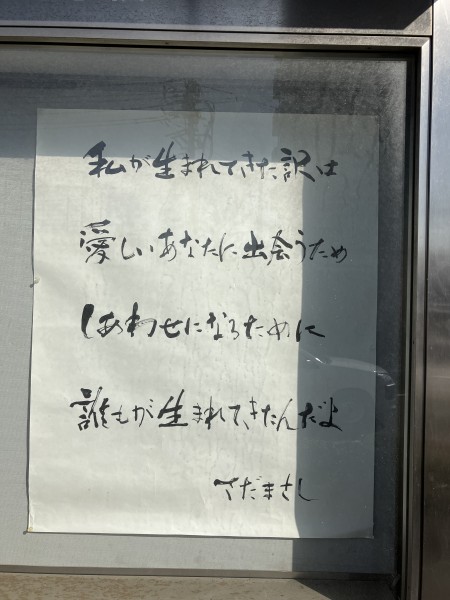 私が生まれてきた訳は
愛しいあなたに出会うため
しあわせになるために
誰もが生まれてきたんだよ
さだまさし